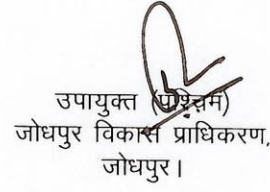 उपायुक्त (पश्चिम)
जोधपुर विकास प्राधिकरण,
जोधपुर।